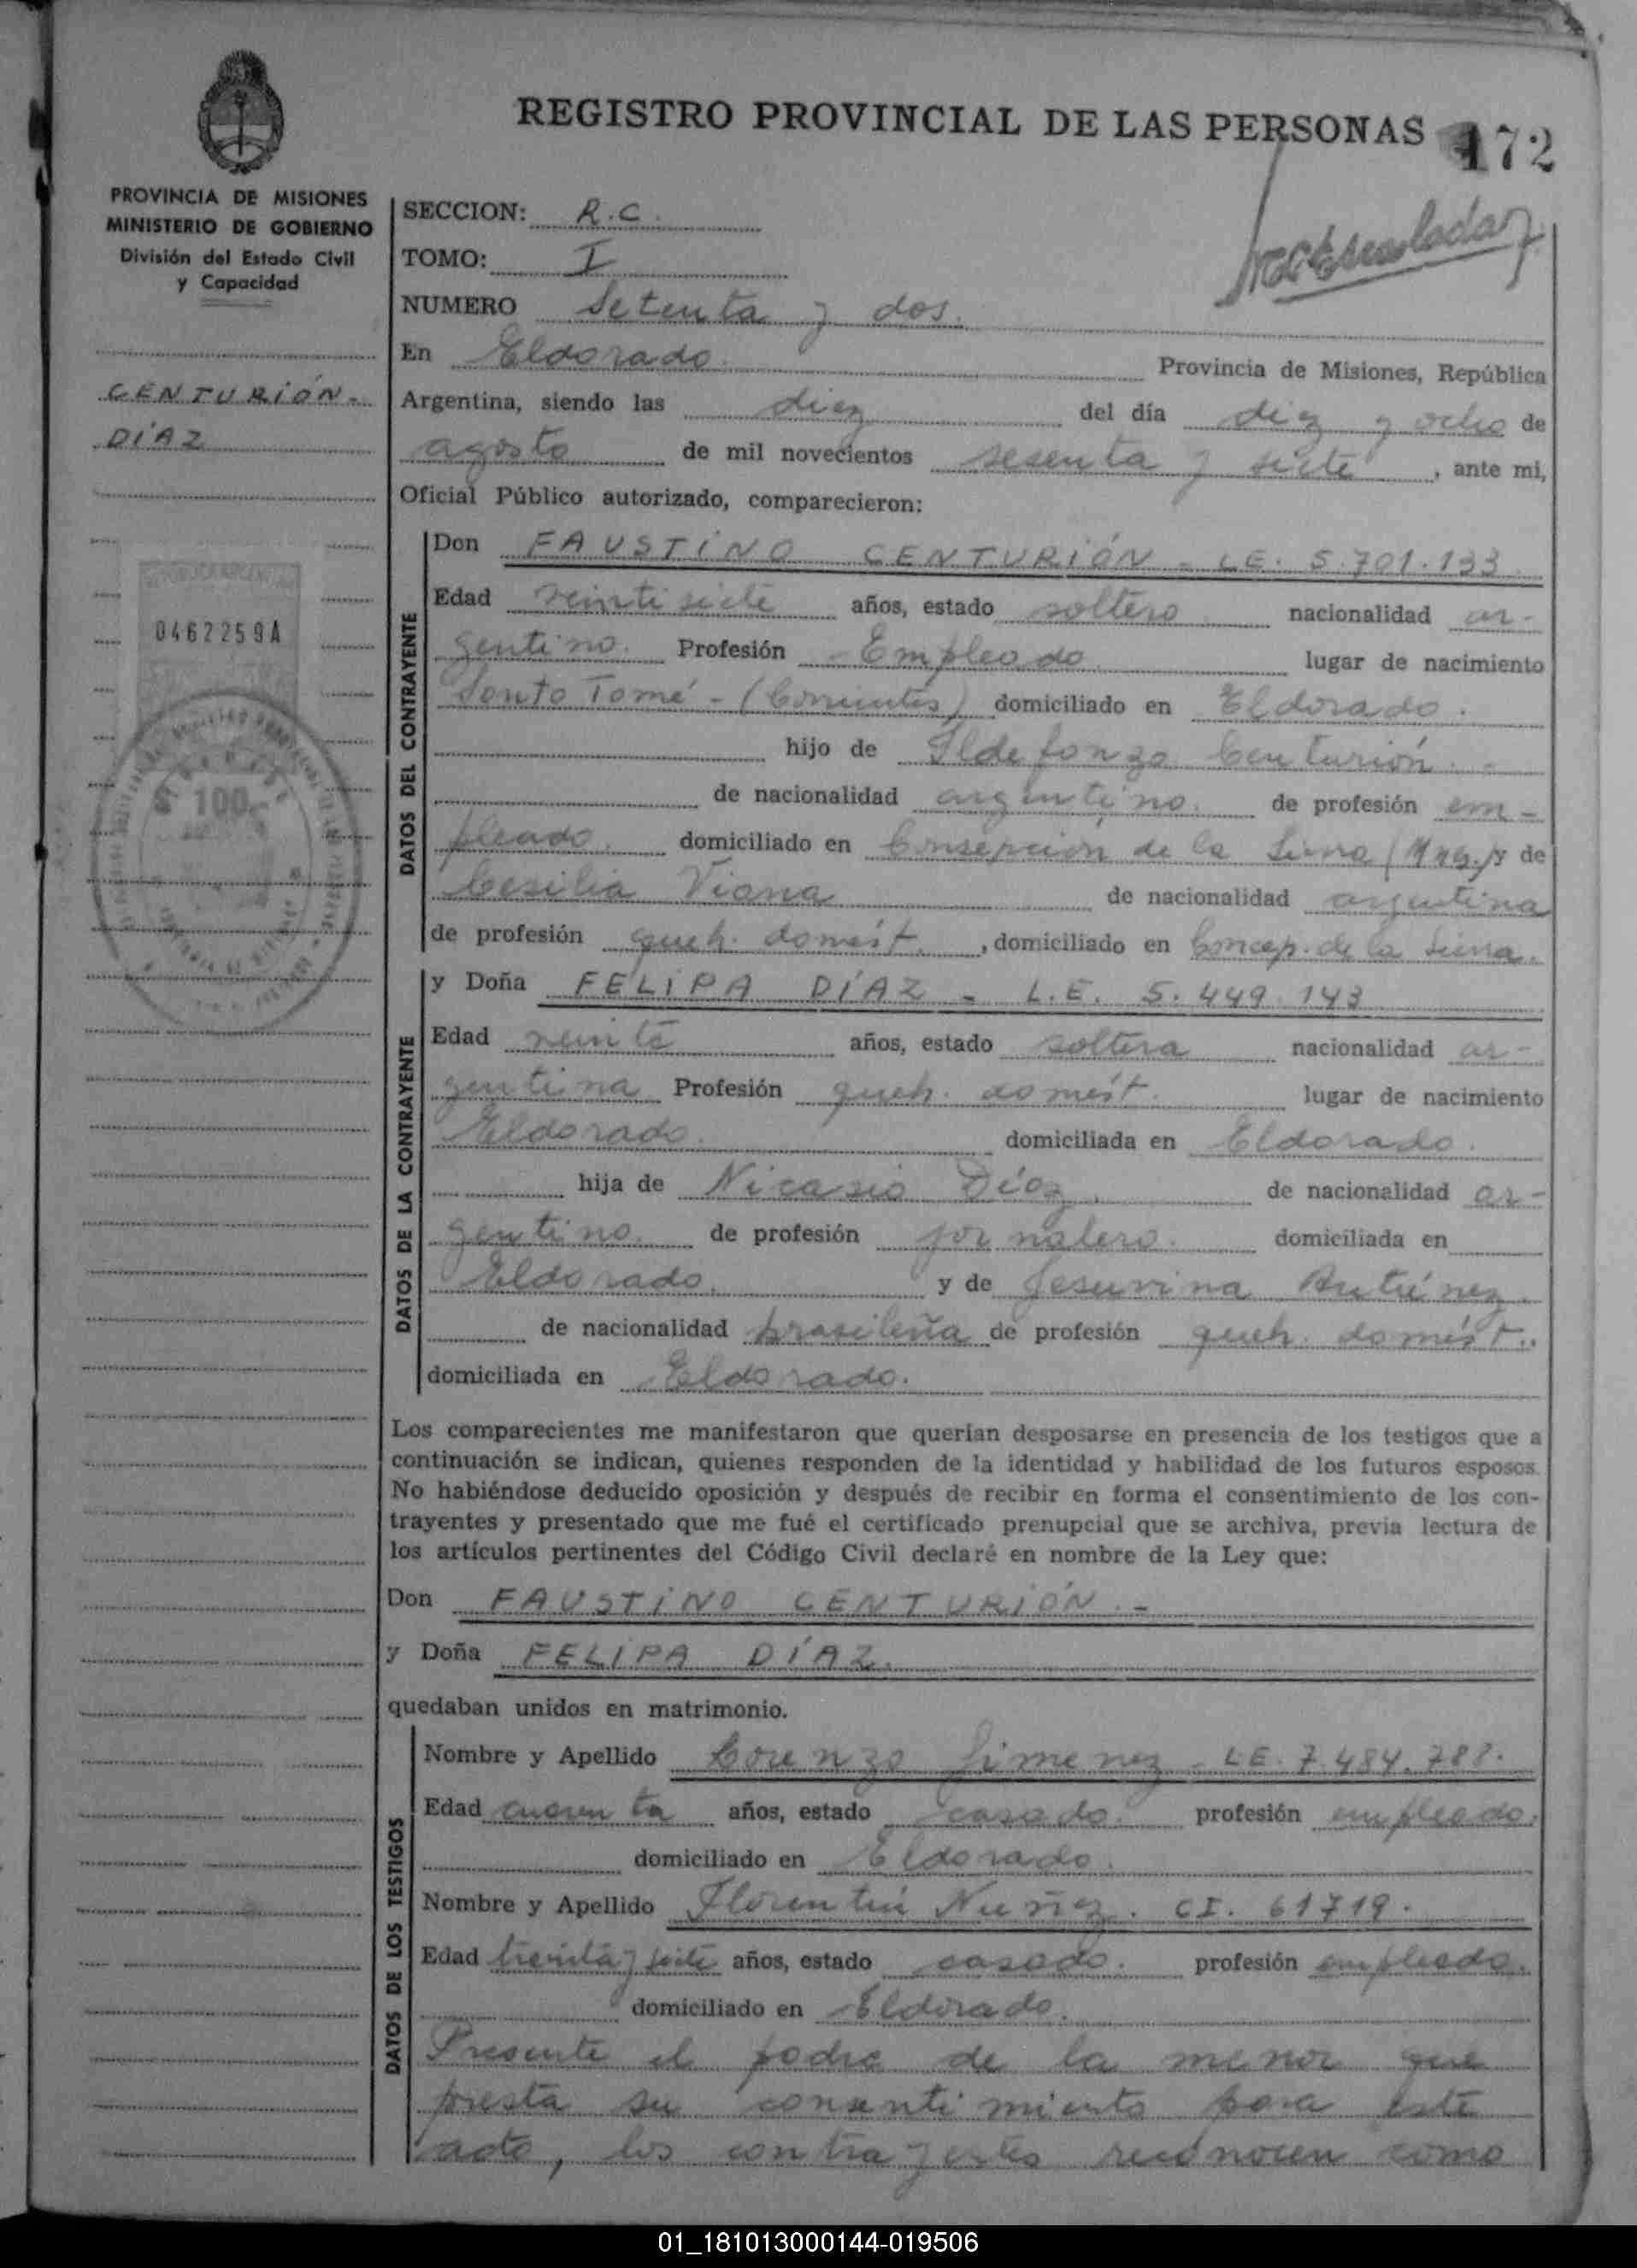 REGISTRO PROVINCIAL DE LAS PERSONAS 172
PROVINCIA DE MISIONES
MINISTERIO DE GOBIERNO
División del Estado Civil
y Capacidad
CENTURIÓN-
DÍAZ
0462259A
100
SECCION: R.C.
TOMO: I
NUMERO Setenta y dos.
En Eldorado. Provincia de Misiones, República
Argentina, siendo las diez del día diez y ocho de
agosto de mil novecientos sesenta y siete, ante mi,
Oficial Público autorizado, comparecieron:
DATOS DEL CONTRAYENTE
Don FAUSTINO CENTURIÓN - LE. 5.701.133
Edad veintisiete años, estado soltero nacionalidad ar-
gentino. Profesión Empleado lugar de nacimiento
Santo Tomé - (Corrientes) domiciliado en Eldorado.
hijo de Ildefonzo Centurión. -
de nacionalidad argentino. de profesión em-
pleado. domiciliado en Consepción de la Sierra (Mns.) y de
Cesilia Viana de nacionalidad argentina
de profesión queh. domést. , domiciliado en Concep. de la Sierra.
DATOS DE LA CONTRAYENTE
y Doña FELIPA DÍAZ - L.E. 5.449.143
Edad veinte años, estado soltera nacionalidad ar-
gentina Profesión queh. domést. lugar de nacimiento
Eldorado. domiciliada en Eldorado.
hija de Nicasio Díaz, de nacionalidad ar-
gentino. de profesión jornalero. domiciliada en
Eldorado, y de Jesuvina Antúnez.
de nacionalidad brasileña de profesión queh. domést..
domiciliada en Eldorado.
Los comparecientes me manifestaron que querían desposarse en presencia de los testigos que a
continuación se indican, quienes responden de la identidad y habilidad de los futuros esposos.
No habiéndose deducido oposición y después de recibir en forma el consentimiento de los con-
trayentes y presentado que me fué el certificado prenupcial que se archiva, previa lectura de
los artículos pertinentes del Código Civil declaré en nombre de la Ley que:
Don FAUSTINO CENTURIÓN. -
y Doña FELIPA DÍAZ.
quedaban unidos en matrimonio.
DATOS DE LOS TESTIGOS
Nombre y Apellido Lorenzo Jimenez - LE. 7.484.788.
Edad cuarenta años, estado casado. profesión empleado.
domiciliado en Eldorado.
Nombre y Apellido Florentín Nuñez. CI. 61719.
Edad treinta y siete años, estado casado. profesión empleado.
domiciliado en Eldorado.
Presente el padre de la menor que
presta su consentimiento para este
acto, los contrayentes reconocen como
01_181013000144-019506